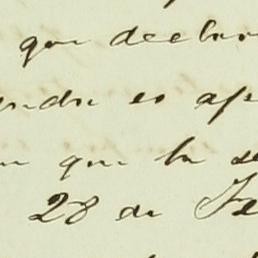 que declar
es ap
que la se
28 de Fe